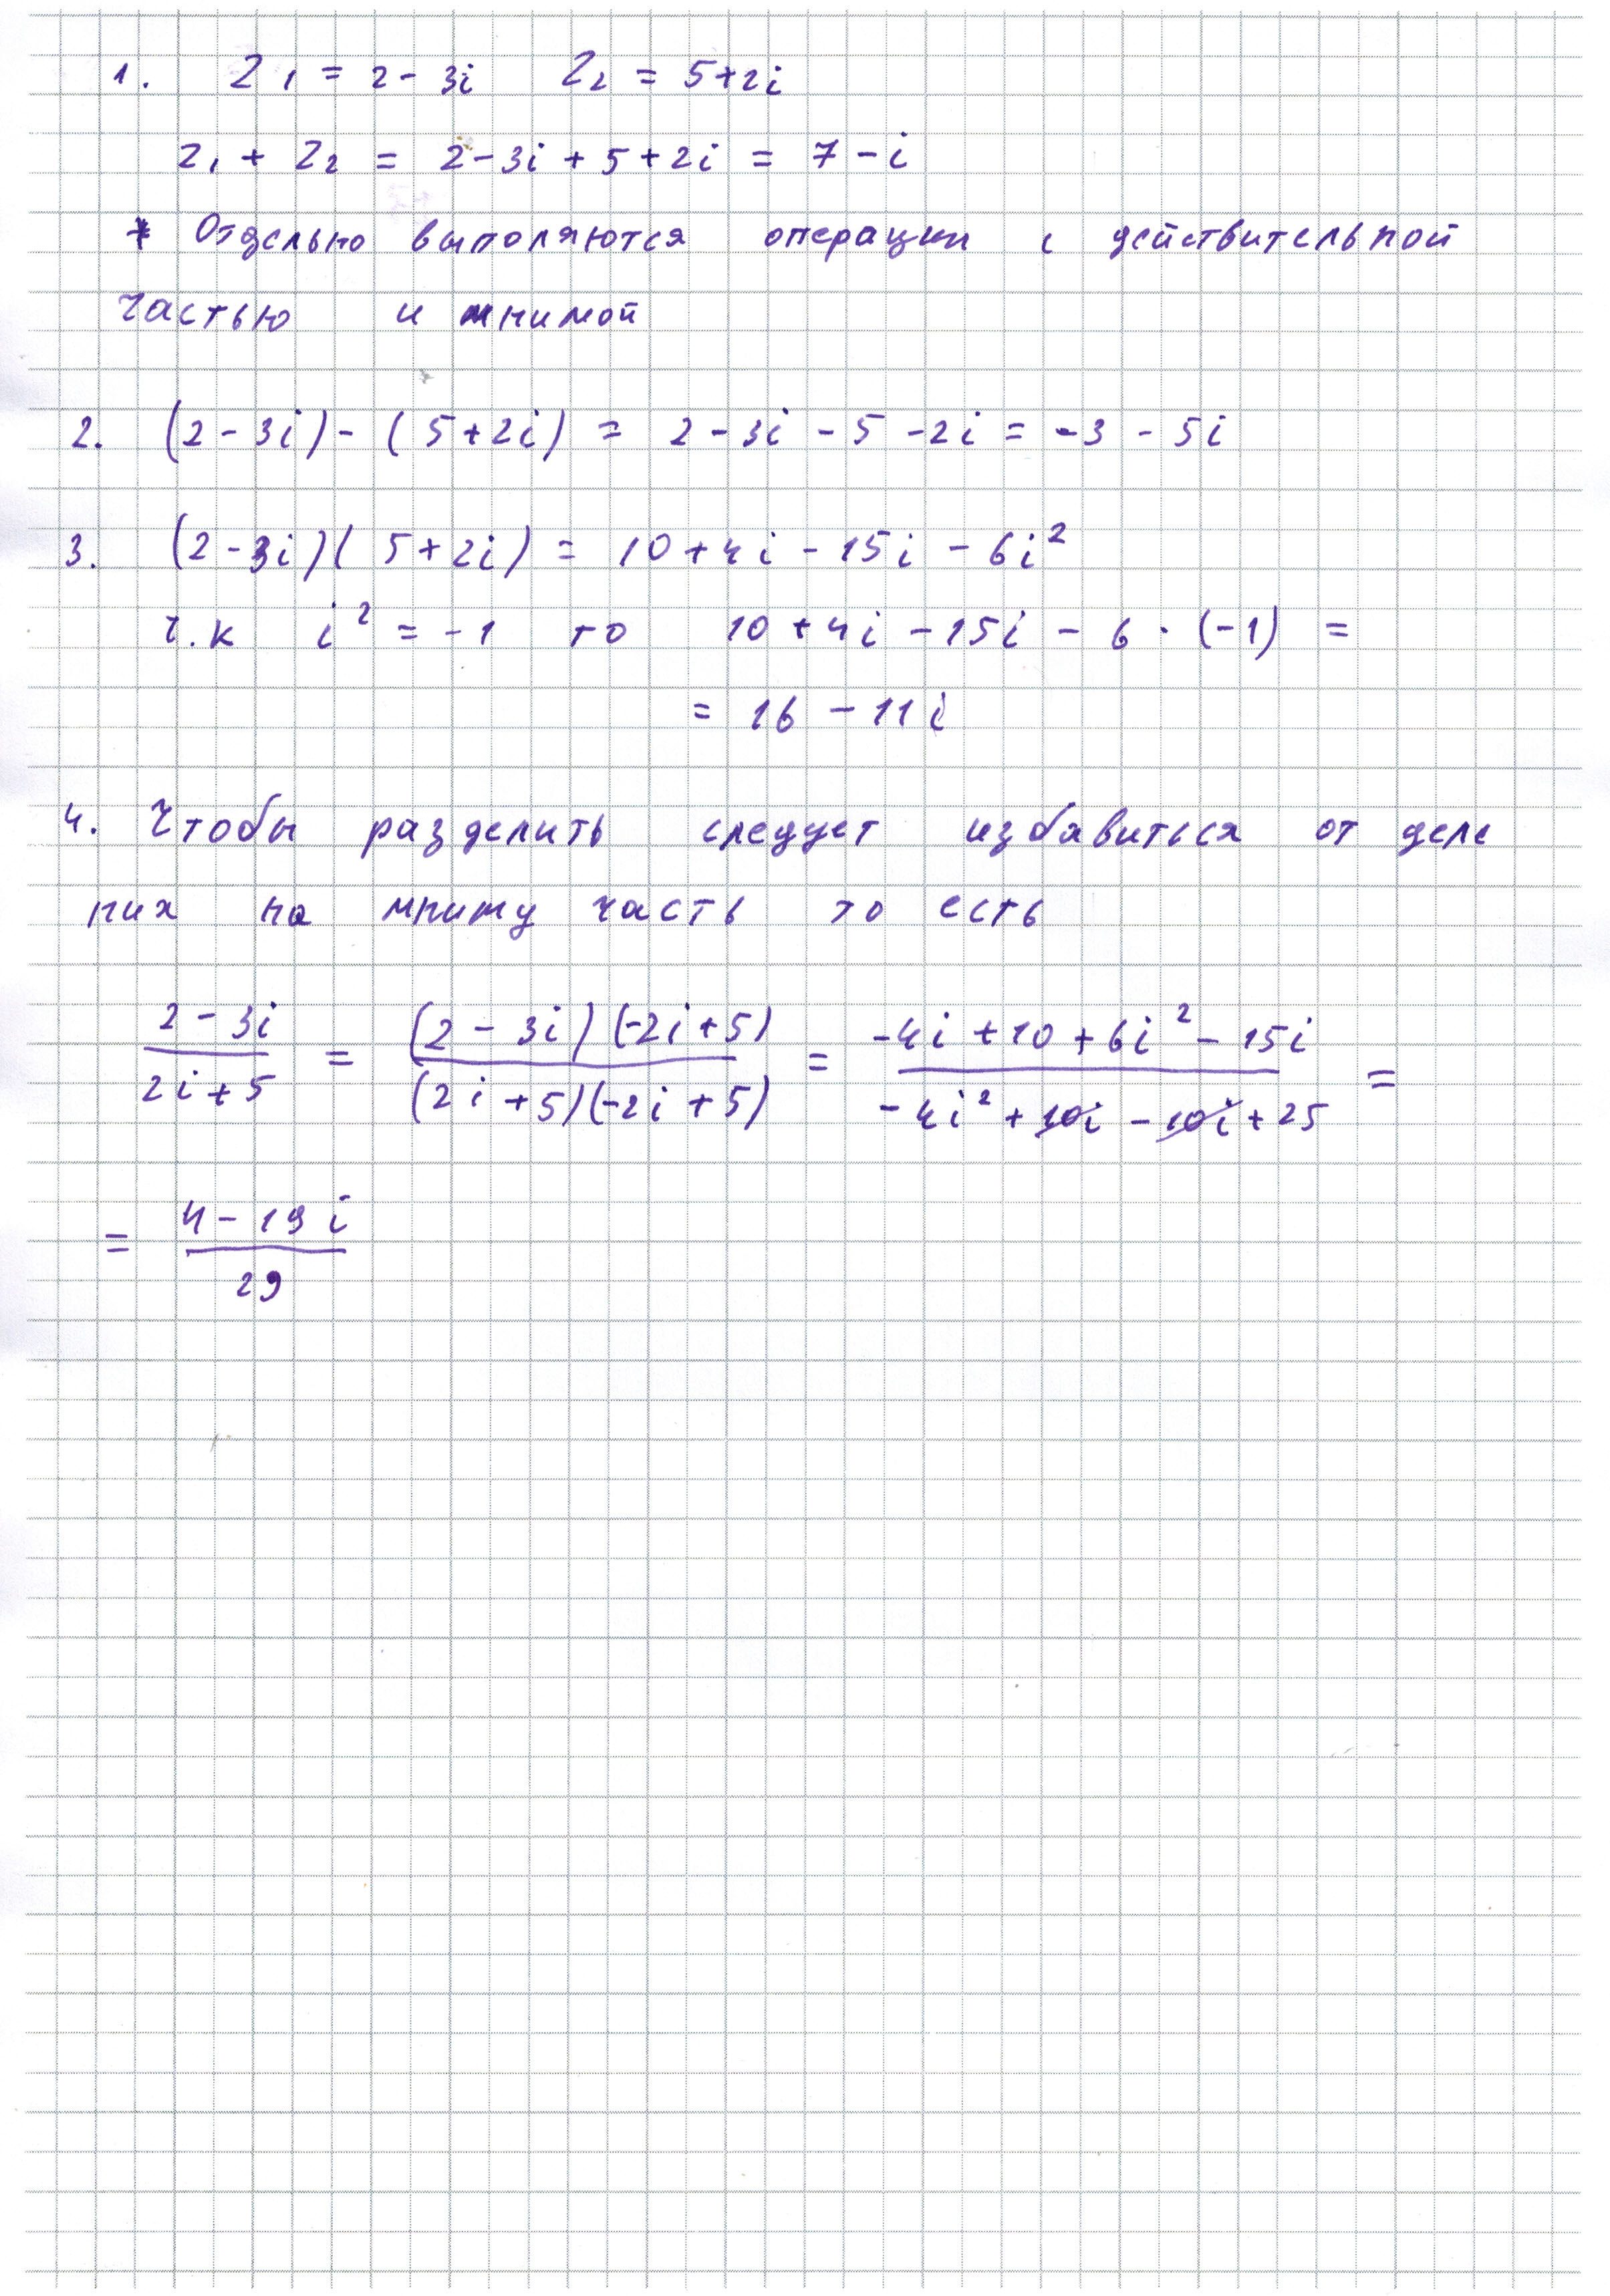 1. Z₁ = 2 - 3i Z₂ = 5+2i
Z₁ + Z₂ = 2-3i + 5+2i = 7 - i
* Отдельно выполяются операции с действительной
частью и мнимой
2. (2 - 3i) - (5+2i) = 2 - 3i - 5 - 2i = -3 - 5i
3. (2 - 3i)(5+2i) = 10 + 4i - 15i - 6i²
т.к i² = -1 то 10 + 4i - 15i - 6 · (-1) =
= 16 - 11i
4. Чтобы разделить следует избавиться от деле
ния на мниму часть то есть
(2 - 3i)/(2i+5) = ((2 - 3i)(-2i+5))/((2i+5)(-2i+5)) = (-4i + 10 + 6i² - 15i)/(-4i² + 10i - 10i + 25) =
= (4 - 19i)/29